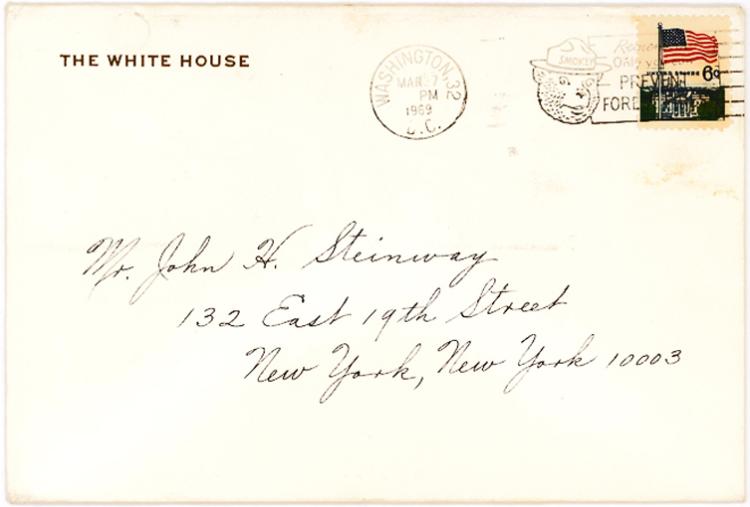 THE WHITE HOUSE
WASHINGTON, 32
MAR 7
PM
1969
D.C.
SMOKEY
Only you
PREVENT
6c
Mr. John H. Steinway
132 East 19th Street
New York, New York 10003